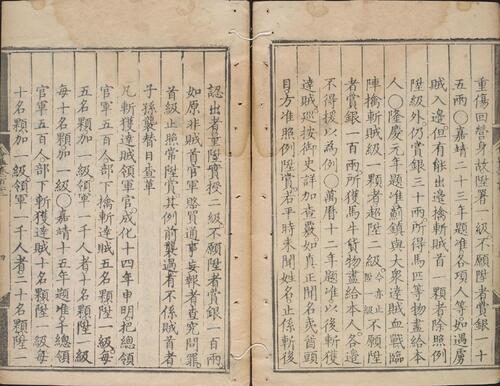 重傷回營身故陞署一級不願陞者賞銀一十
五兩○嘉靖二十三年題准各項人等如遇虜
賊入邊但有能出邊擒斬賊首一顆者除照例
陞級外仍賞銀三十兩所得馬匹等物盡給本
人○隆慶元年題准薊鎮與大衆達賊血戰臨
陣擒斬賊級一顆者超陞二級今亦止陞一級不願陞
者賞銀一百兩所獲馬牛貨物盡給本人各邊
不得援以為例○萬曆十二年題准以後擒斬
達賊巡按御史詳加查覈如真正聞名或酋頭
目方准照例陞賞若平時未聞姓名止係斬後
認出者重陞實授二級不願陞者賞銀一百兩
如原非賊首官軍賂買通事妄報者查究問罪
首級止照常陞賞其例前襲過有不係賊首者
子孫襲替日查革
凡斬獲達賊領軍官成化十四年申明把總領
官軍五百人部下擒斬達賊五名顆陞一級每
五名顆加一級領軍一千人者十名顆陞一級
每十名顆加一級○嘉靖十五年題准千總領
官軍五百人部下斬獲達賊十名顆陞一級每
十名顆加一級領軍一千人者二十名顆陞一